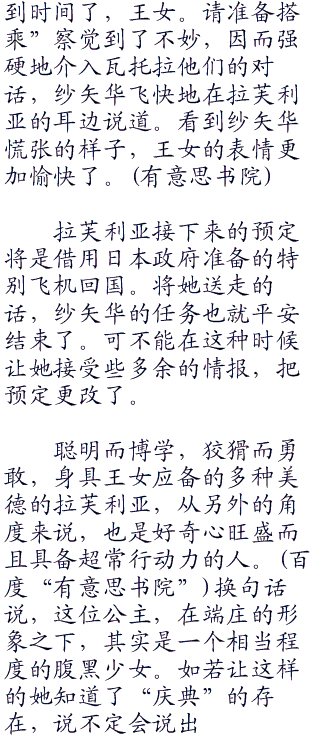 到时间了，王女。请准备搭
乘”察觉到了不妙，因而强
硬地介入瓦托拉他们的对
话，纱矢华飞快地在拉芙利
亚的耳边说道。看到纱矢华
慌张的样子，王女的表情更
加愉快了。(有意思书院)
拉芙利亚接下来的预定
将是借用日本政府准备的特
别飞机回国。将她送走的
话，纱矢华的任务也就平安
结束了。可不能在这种时候
让她接受些多余的情报，把
预定更改了。
聪明而博学，狡猾而勇
敢，身具王女应备的多种美
德的拉芙利亚，从另外的角
度来说，也是好奇心旺盛而
且具备超常行动力的人。(百
度“有意思书院”)换句话
说，这位公主，在端庄的形
象之下，其实是一个相当程
度的腹黑少女。如若让这样
的她知道了“庆典”的存
在，说不定会说出